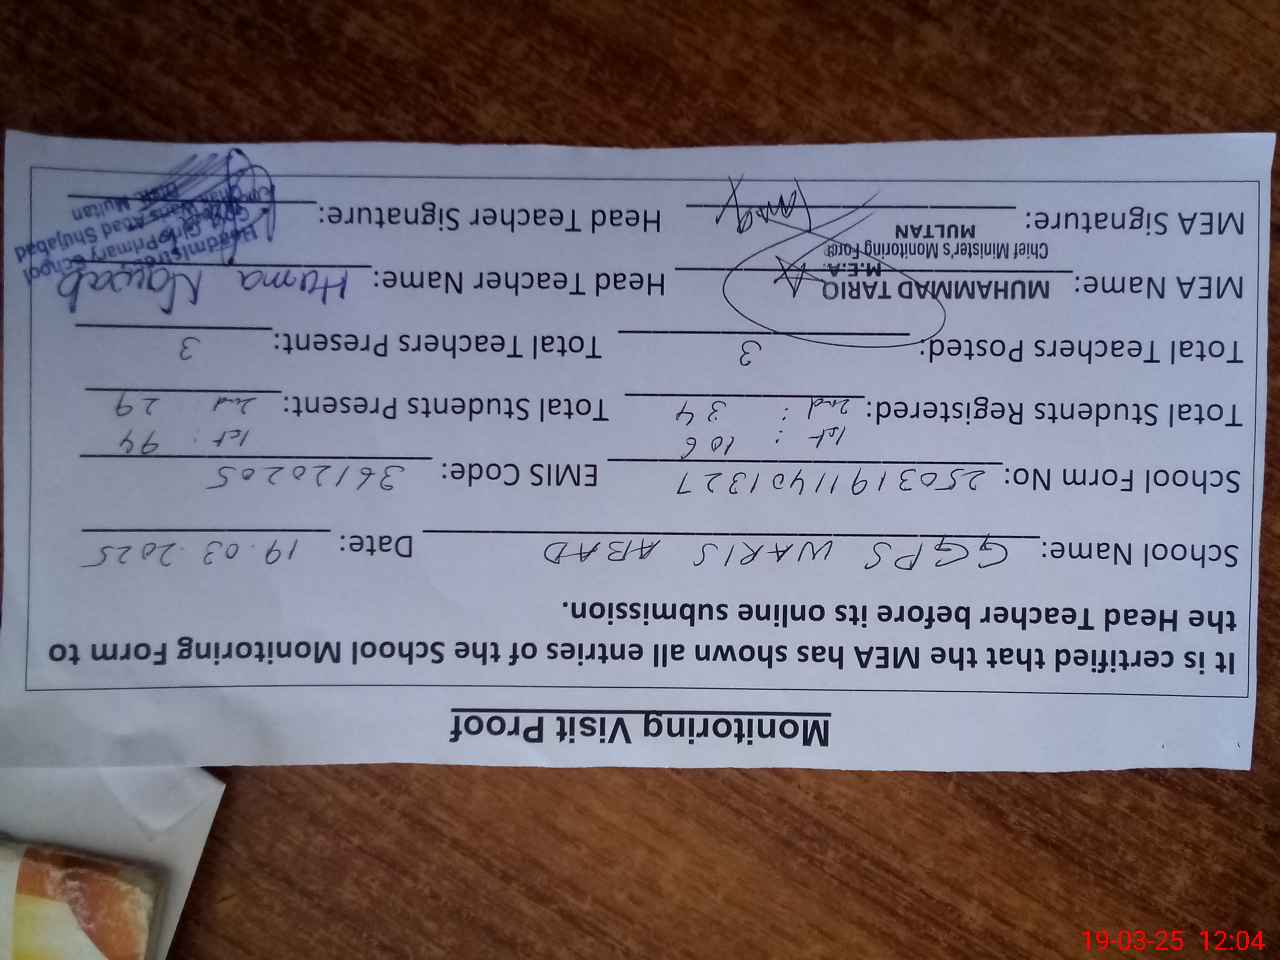 Monitoring Visit Proof
It is certified that the MEA has shown all entries of the School Monitoring Form to
the Head Teacher before its online submission.
School Name: GGPS WARIS ABAD Date: 19.03.2025
School Form No: 25031911401327 EMIS Code: 36120205
1st : 106 1st : 94
Total Students Registered: 2nd : 34 Total Students Present: 2nd 29
Total Teachers Posted: 3 Total Teachers Present: 3
MEA Name: MUHAMMAD TARIQ Head Teacher Name: Huma Nawab
M.E.A.
Chief Minister's Monitoring Force
MULTAN
MEA Signature: Head Teacher Signature:
Headmistress
Govt. Girls Primary School
Waris Abad Shujabad
Distt. Multan
19-03-25 12:04